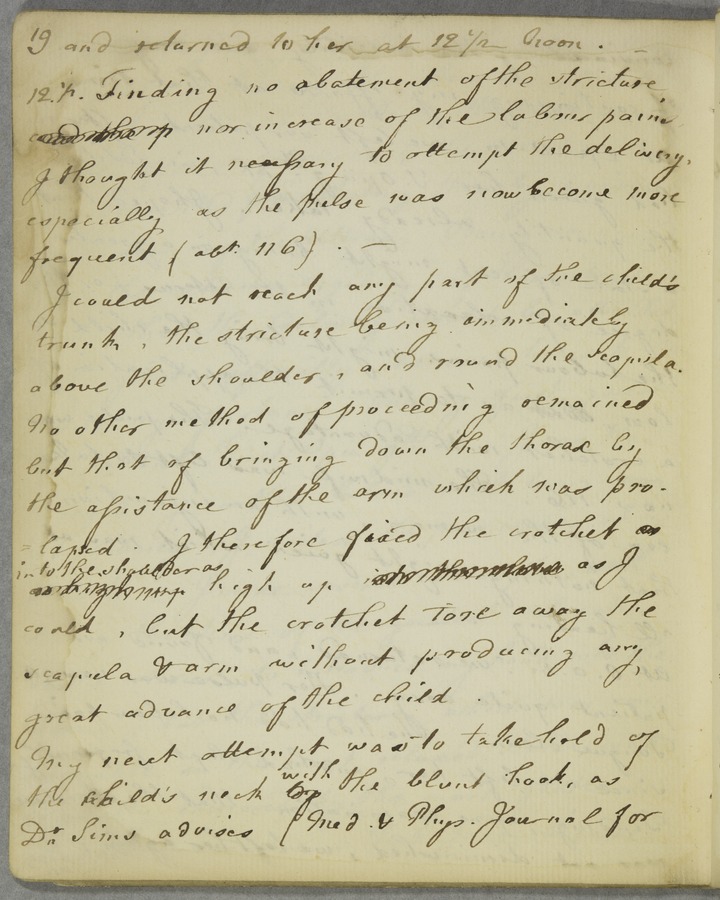 19 and returned to her at 12 1/2 Noon. —
12.½. Finding no abatement of the stricture
nor increase of the labour pains
I thought it necessary to attempt the delivery,
especially as the pulse was now become more
frequent (abt. 116). —
I could not reach any part of the child's
trunk, the stricture being immediately
above the shoulder, and round the scapula.
No other method of proceeding remained
but that of bringing down the thorax by
the assistance of the arm which was pro-
=lapsed. I therefore fixed the crotchet
into the shoulder as
high up as I
could, but the crotchet tore away the
scapula & arm without producing any
great advance of the child.
My next attempt was to take hold of
with
the child's neck by the blunt hook, as
Dr. Sims advises (Med. & Phys. Journal for